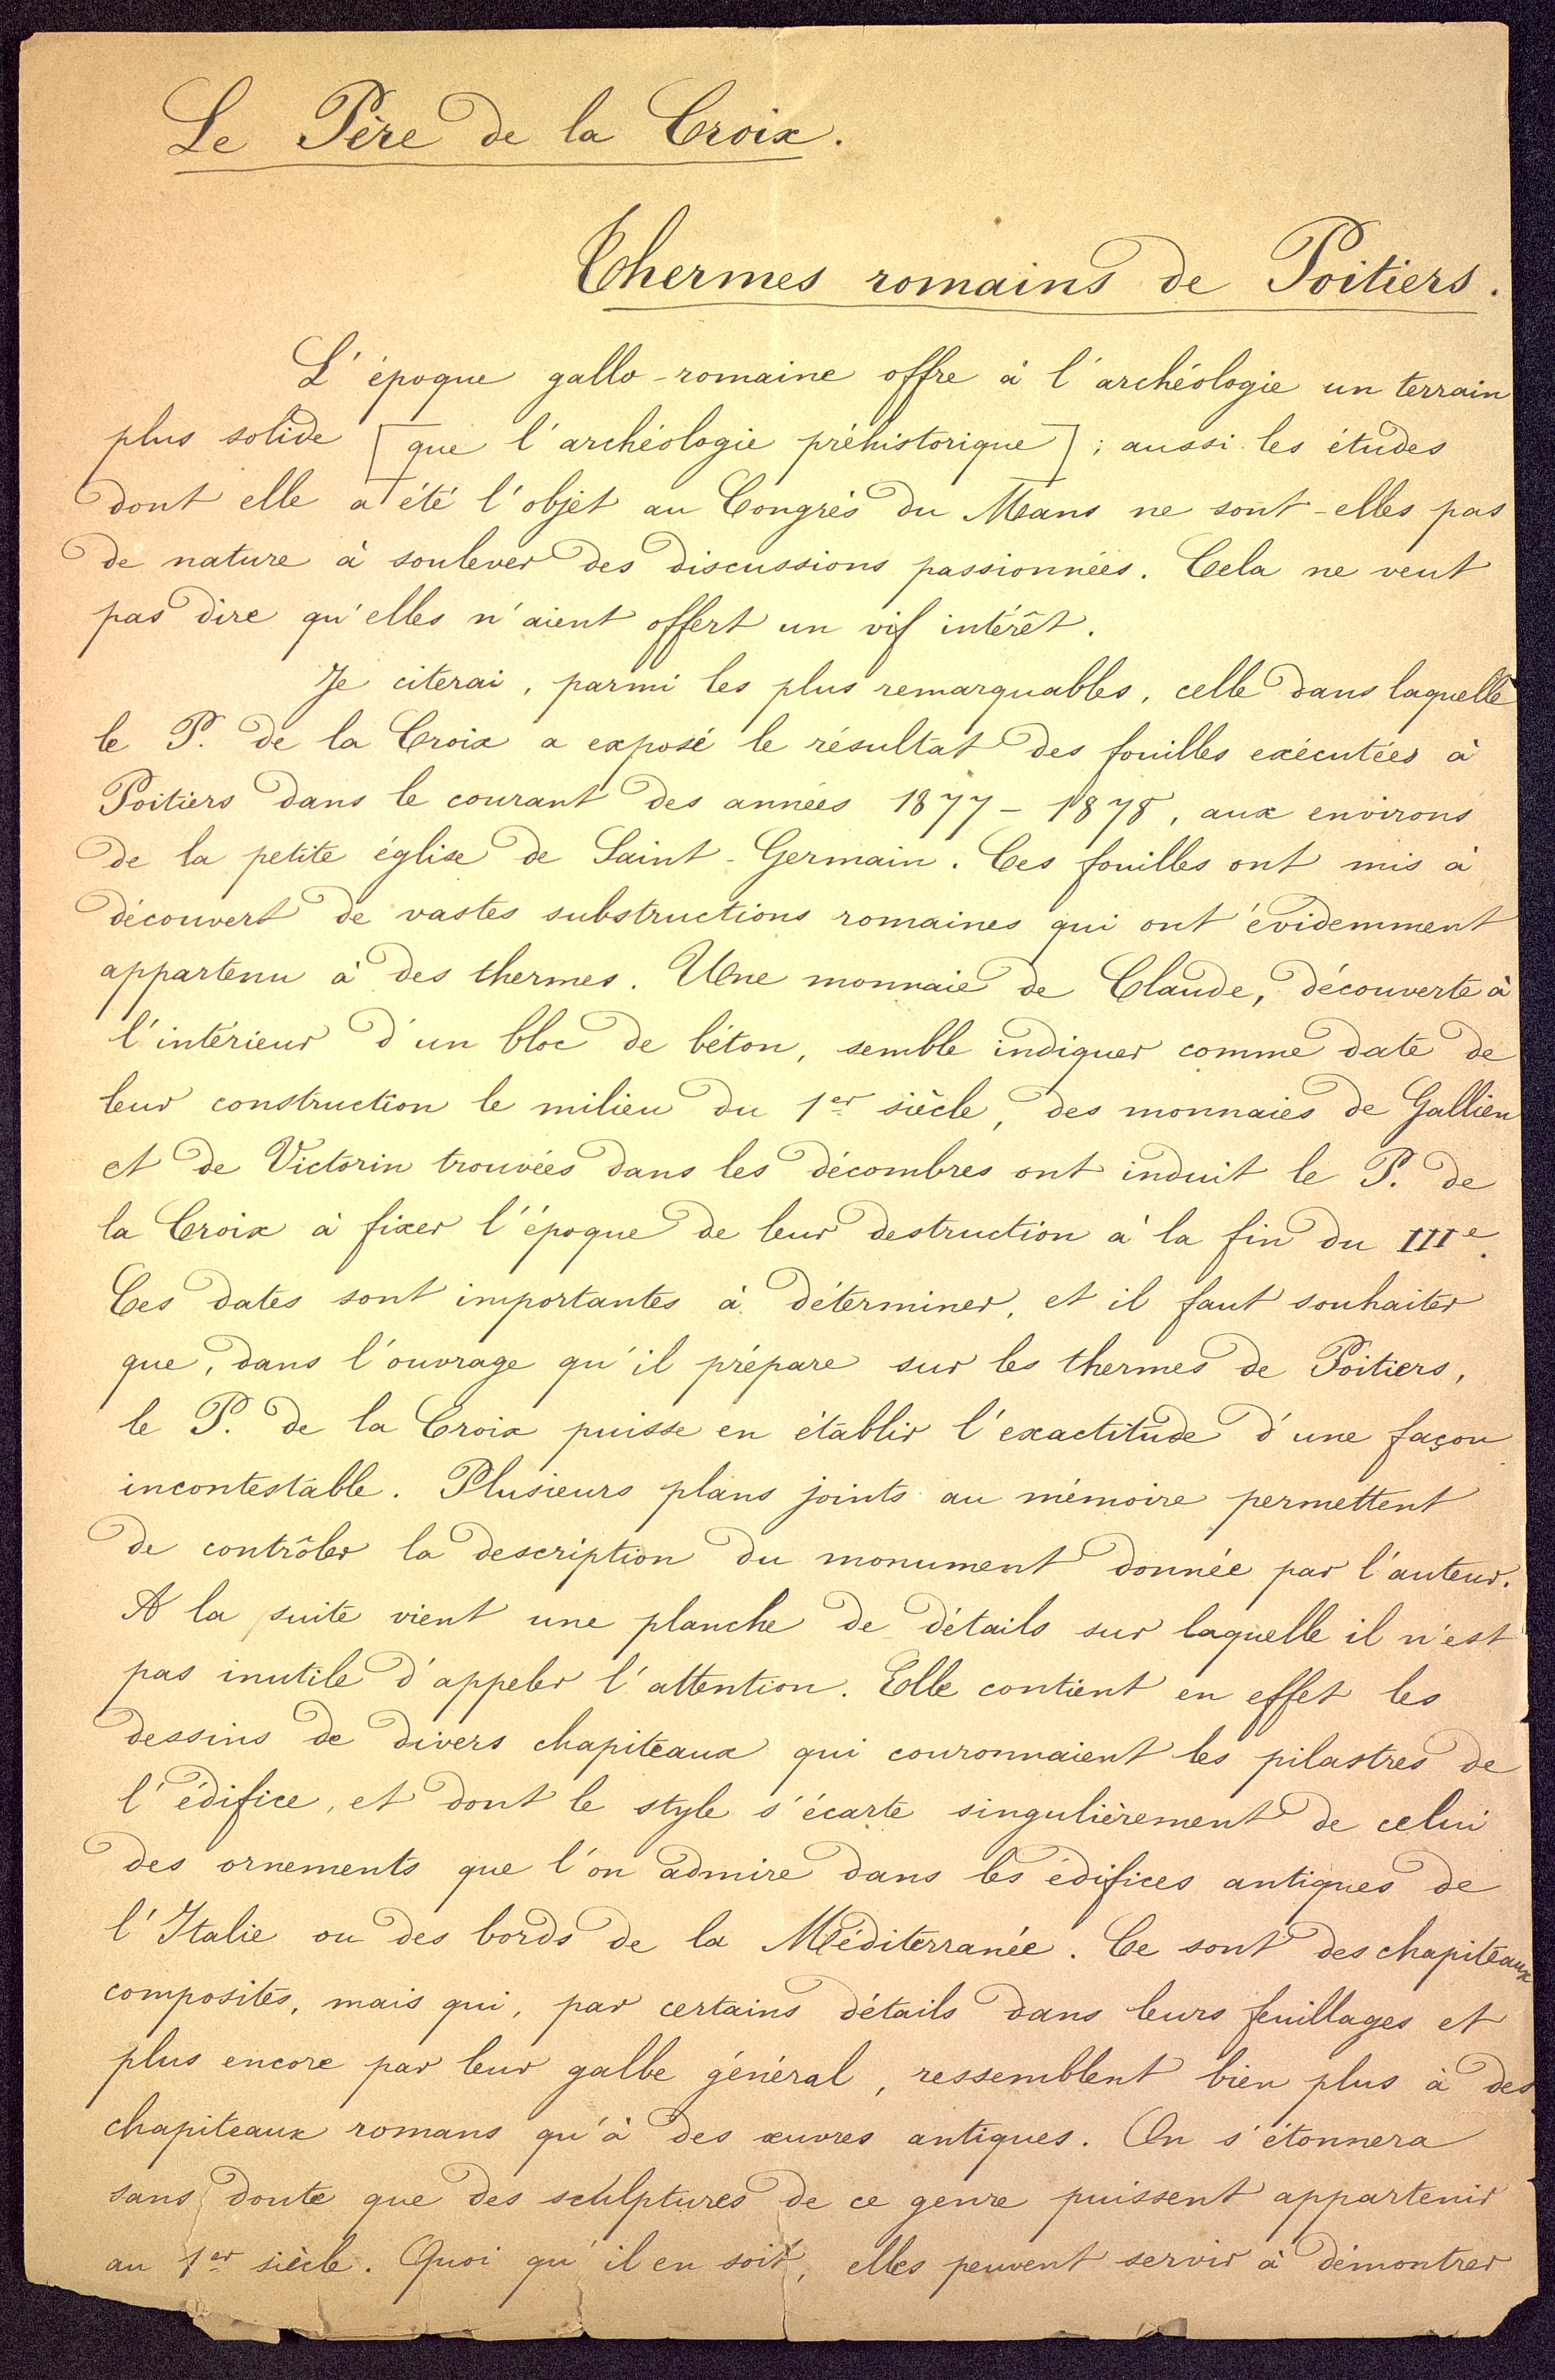 Le Père de la Croix.
Thermes romains de Poitiers.
L'époque gallo-romaine offre à l'archéologie un terrain
plus solide [que l'archéologie préhistorique] ; aussi les études
dont elle a été l'objet au Congrès du Mans ne sont-elles pas
de nature à soulever des discussions passionnées. Cela ne veut
pas dire qu'elles n'aient offert un vif intérêt.
Je citerai, parmi les plus remarquables, celle dans laquelle
le P. de la Croix a exposé le résultat des fouilles exécutées à
Poitiers dans le courant des années 1877-1878, aux environs
de la petite église de Saint-Germain. Ces fouilles ont mis à
découvert de vastes substructions romaines qui ont évidemment
appartenu à des thermes. Une monnaie de Claude, découverte à
l'intérieur d'un bloc de béton, semble indiquer comme date de
leur construction le milieu du 1er siècle, des monnaies de Gallien
et de Victorin trouvées dans les décombres ont induit le P. de
la Croix à fixer l'époque de leur destruction à la fin du IIIe.
Ces dates sont importantes à déterminer, et il faut souhaiter
que, dans l'ouvrage qu'il prépare sur les thermes de Poitiers,
le P. de la Croix puisse en établir l'exactitude d'une façon
incontestable. Plusieurs plans joints au mémoire permettent
de contrôler la description du monument donnée par l'auteur.
A la suite vient une planche de détails sur laquelle il n'est
pas inutile d'appeler l'attention. Elle contient en effet les
dessins de divers chapiteaux qui couronnaient les pilastres de
l'édifice, et dont le style s'écarte singulièrement de celui
des ornements que l'on admire dans les édifices antiques de
l'Italie ou des bords de la Méditerranée. Ce sont des chapiteaux
composites, mais qui, par certains détails dans leurs feuillages et
plus encore par leur galbe général, ressemblent bien plus à des
chapiteaux romans qu'à des œuvres antiques. On s'étonnera
sans doute que des sculptures de ce genre puissent appartenir
au 1er siècle. Quoi qu'il en soit, elles peuvent servir à démontrer